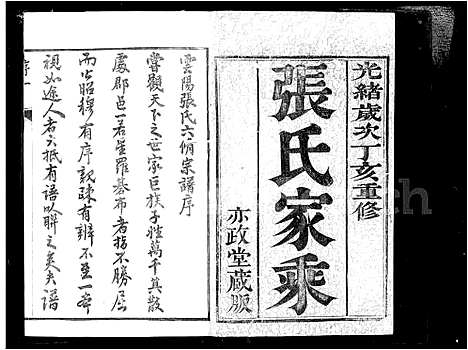 光緒歲次丁亥重修
張氏家乘
亦政堂藏版
雲陽張氏六脩宗譜序
嘗觀天下之世家巨族子姓萬千其散
處郡邑一若星羅碁布者指不勝屈
而必昭穆有序親疎有辨不至一本
視如途人者六抵有譜以聯之矣夫譜
序一